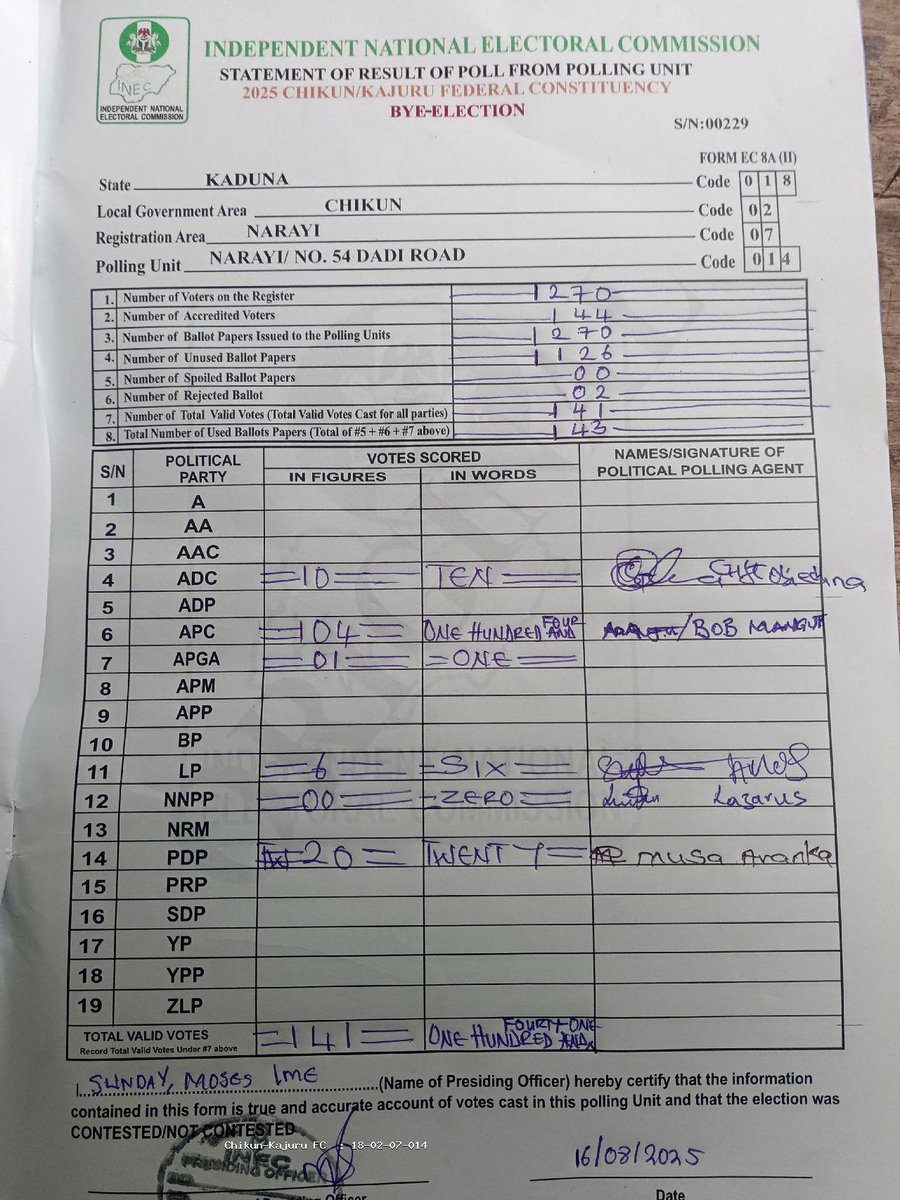 INEC
INDEPENDENT NATIONAL
ELECTORAL COMMISSION
INDEPENDENT NATIONAL ELECTORAL COMMISSION
STATEMENT OF RESULT OF POLL FROM POLLING UNIT
2025 CHIKUN/KAJURU FEDERAL CONSTITUENCY
BYE-ELECTION
S/N:00229
FORM EC 8A (II)
State KADUNA Code 0 1 8
Local Government Area CHIKUN Code 0 2
Registration Area NARAYI Code 0 7
Polling Unit NARAYI/ NO. 54 DADI ROAD Code 0 1 4
1. Number of Voters on the Register 1270
2. Number of Accredited Voters 144
3. Number of Ballot Papers Issued to the Polling Units 1270
4. Number of Unused Ballot Papers 1126
5. Number of Spoiled Ballot Papers 00
6. Number of Rejected Ballot 02
7. Number of Total Valid Votes (Total Valid Votes Cast for all parties) 141
8. Total Number of Used Ballots Papers (Total of #5 + #6 + #7 above) 143
S/N POLITICAL PARTY VOTES SCORED NAMES/SIGNATURE OF POLITICAL POLLING AGENT
IN FIGURES IN WORDS
1 A
2 AA
3 AAC
4 ADC =10= TEN
5 ADP
6 APC =104= ONE HUNDRED AND FOUR /BOB MANGUT
7 APGA =01= =ONE=
8 APM
9 APP
10 BP
11 LP =6= =SIX=
12 NNPP =00= =ZERO= Lazarus
13 NRM
14 PDP 20= TWENTY= Musa Avanka
15 PRP
16 SDP
17 YP
18 YPP
19 ZLP
TOTAL VALID VOTES =141= ONE HUNDRED AND FOURTY-ONE
Record Total Valid Votes Under #7 above
I, SUNDAY, MOSES IME (Name of Presiding Officer) hereby certify that the information
contained in this form is true and accurate account of votes cast in this polling Unit and that the election was
CONTESTED/NOT CONTESTED
Chikun-Kajuru FC - 18-02-07-014
INEC
PRESIDING OFFICER
16/08/2025
Officer Date